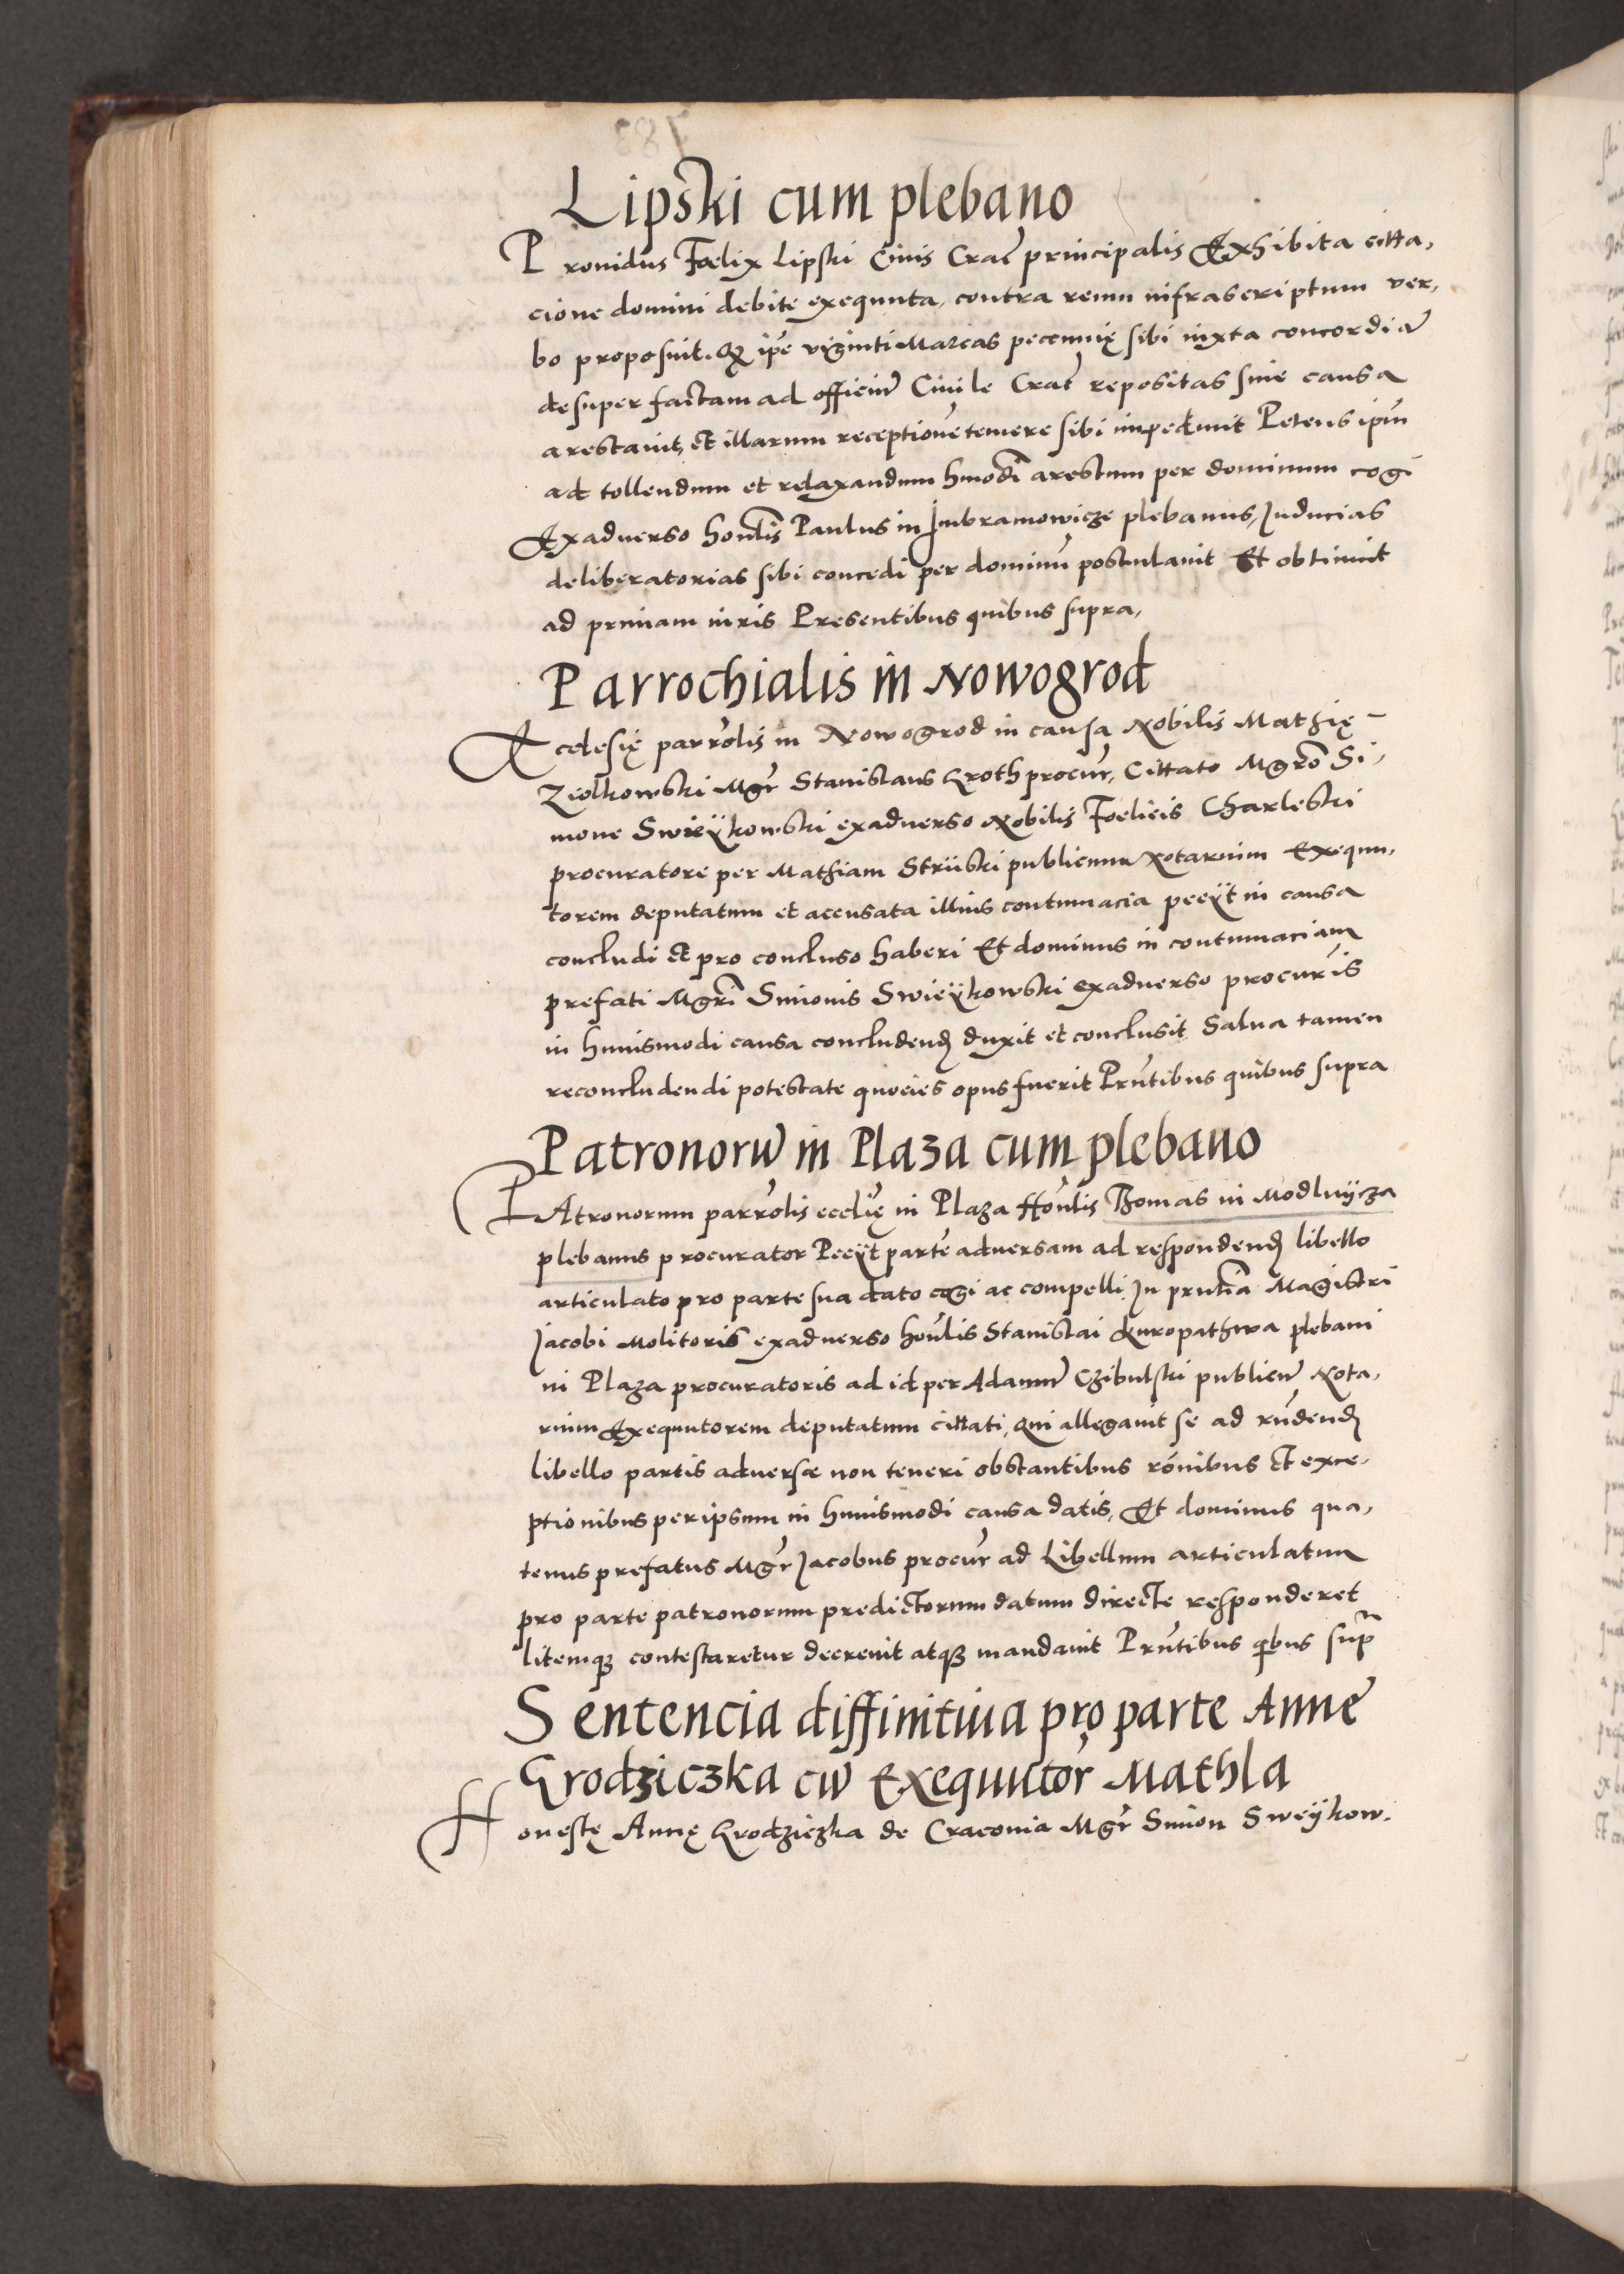 Lipski cum plebano
Prouidus Foelix Lipski Ciuis Crac̃ principalis Exhibita citta,
cione domini debite exequuta, contra reum infrascriptum ver,
bo proposuit. Qꝫ ip̃e viginti Marcas pecunnię sibi iuxta concordiã
desuper factam ad officiũ Ciuile Crac̃ repositas sine causa
arestauit, et illarum receptionẽ temere sibi impediuit Petens ip̃m
ad tollendum et relaxandum hmõdi arestum per dominum cogi
Exaduerso honl̃is Paulus in Imbramowicze plebanus, Inducias
deliberatorias sibi concedi per dominũ postulauit Et obtinuit
ad primam iuris Presentibus quibus supra,
Parrochialis in Nowogrod
Ecclesię parrol̃is in Nowogrod in causa Nobilis Mathię
Ziolkowski Mgr̃ Stanislaus Groth procur̃, Cittato Mgrõ Si,
mone Swieÿkowski exaduerso Nobilis Foelicis Charleski
procuratore per Mathiam Striiski publicum Notarium Exequu,
torem deputatum et accusata illius contumacia peciÿt in causa
concludi et pro concluso haberi Et dominus in contumaciam
prefati Mgrĩ Simonis Swieÿkowski exaduerso procurĩs
in huiusmodi causa concludenđ duxit et conclusit Salua tamen
reconcludendi potestate quocies opus fuerit Prñtibus quibus supra
Patronorũ in Plaza cum plebano
PAtronorum parrol̃is eccl̃ię in Plaza Honl̃is Thomas in Modlniÿcza
plebanus procurator Peciÿt partẽ aduersam ad respondenđ libello
articulato pro parte sua dato cogi ac compelli. In prñtia Magistri
Jacobi Molitoris exaduerso honl̃is Stanislai Kuropathwa plebani
in Plaza procuratoris ad id per Adamũ Czibulski publicũ Nota,
rium Exequutorem deputatum cittati, qui allegauit se ad rñdenđ
libello partis aduersæ non teneri obstantibus rõnibus et exce,
ptionibus per ipsum in huiusmodi causa datis, Et dominus qua,
tenus prefatus Mgr̃ Jacobus procur̃ ad Libellum articulatum
pro parte patronorum predictorum datum directe responderet
litemqꝫ contestaretur decreuit atqꝫ mandauit Prñtibus qibus supr̃
Sentencia diffinitiua pro parte Anne
Grodziczka cũ Exequutor̃ Mathla
Honestę Annę Grodziczka de Cracouia Mgr̃ Simon Sweÿkow.